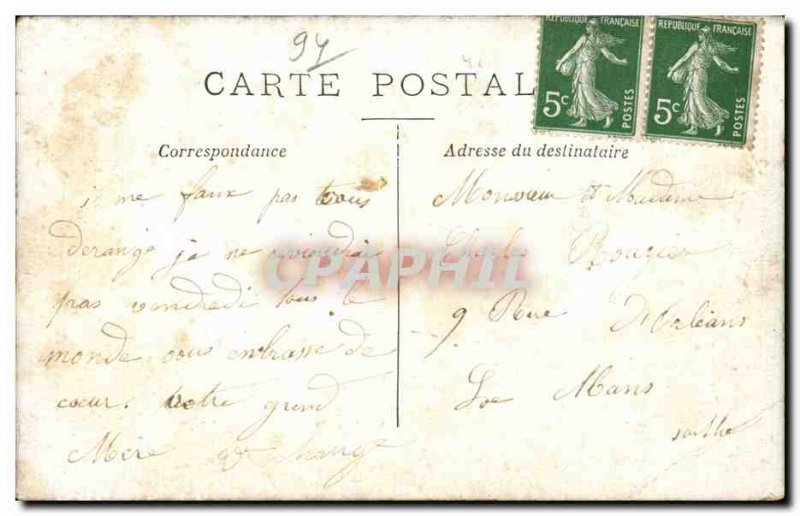 94
CARTE POSTAL
REPUBLIQUE FRANÇAISE
5c
POSTES
REPUBLIQUE FRANÇAISE
5c
POSTES
Correspondance
il me faux pas vous
derangé je ne viendrai
pas vendredi tous le
monde vous enbrasse de
cœur. votre grand
Mère
Adresse du destinataire
Monsieur et Madame
Charles Rougier
9 Rue D'Orléans
Le Mans
sarthe
CPAPHIL